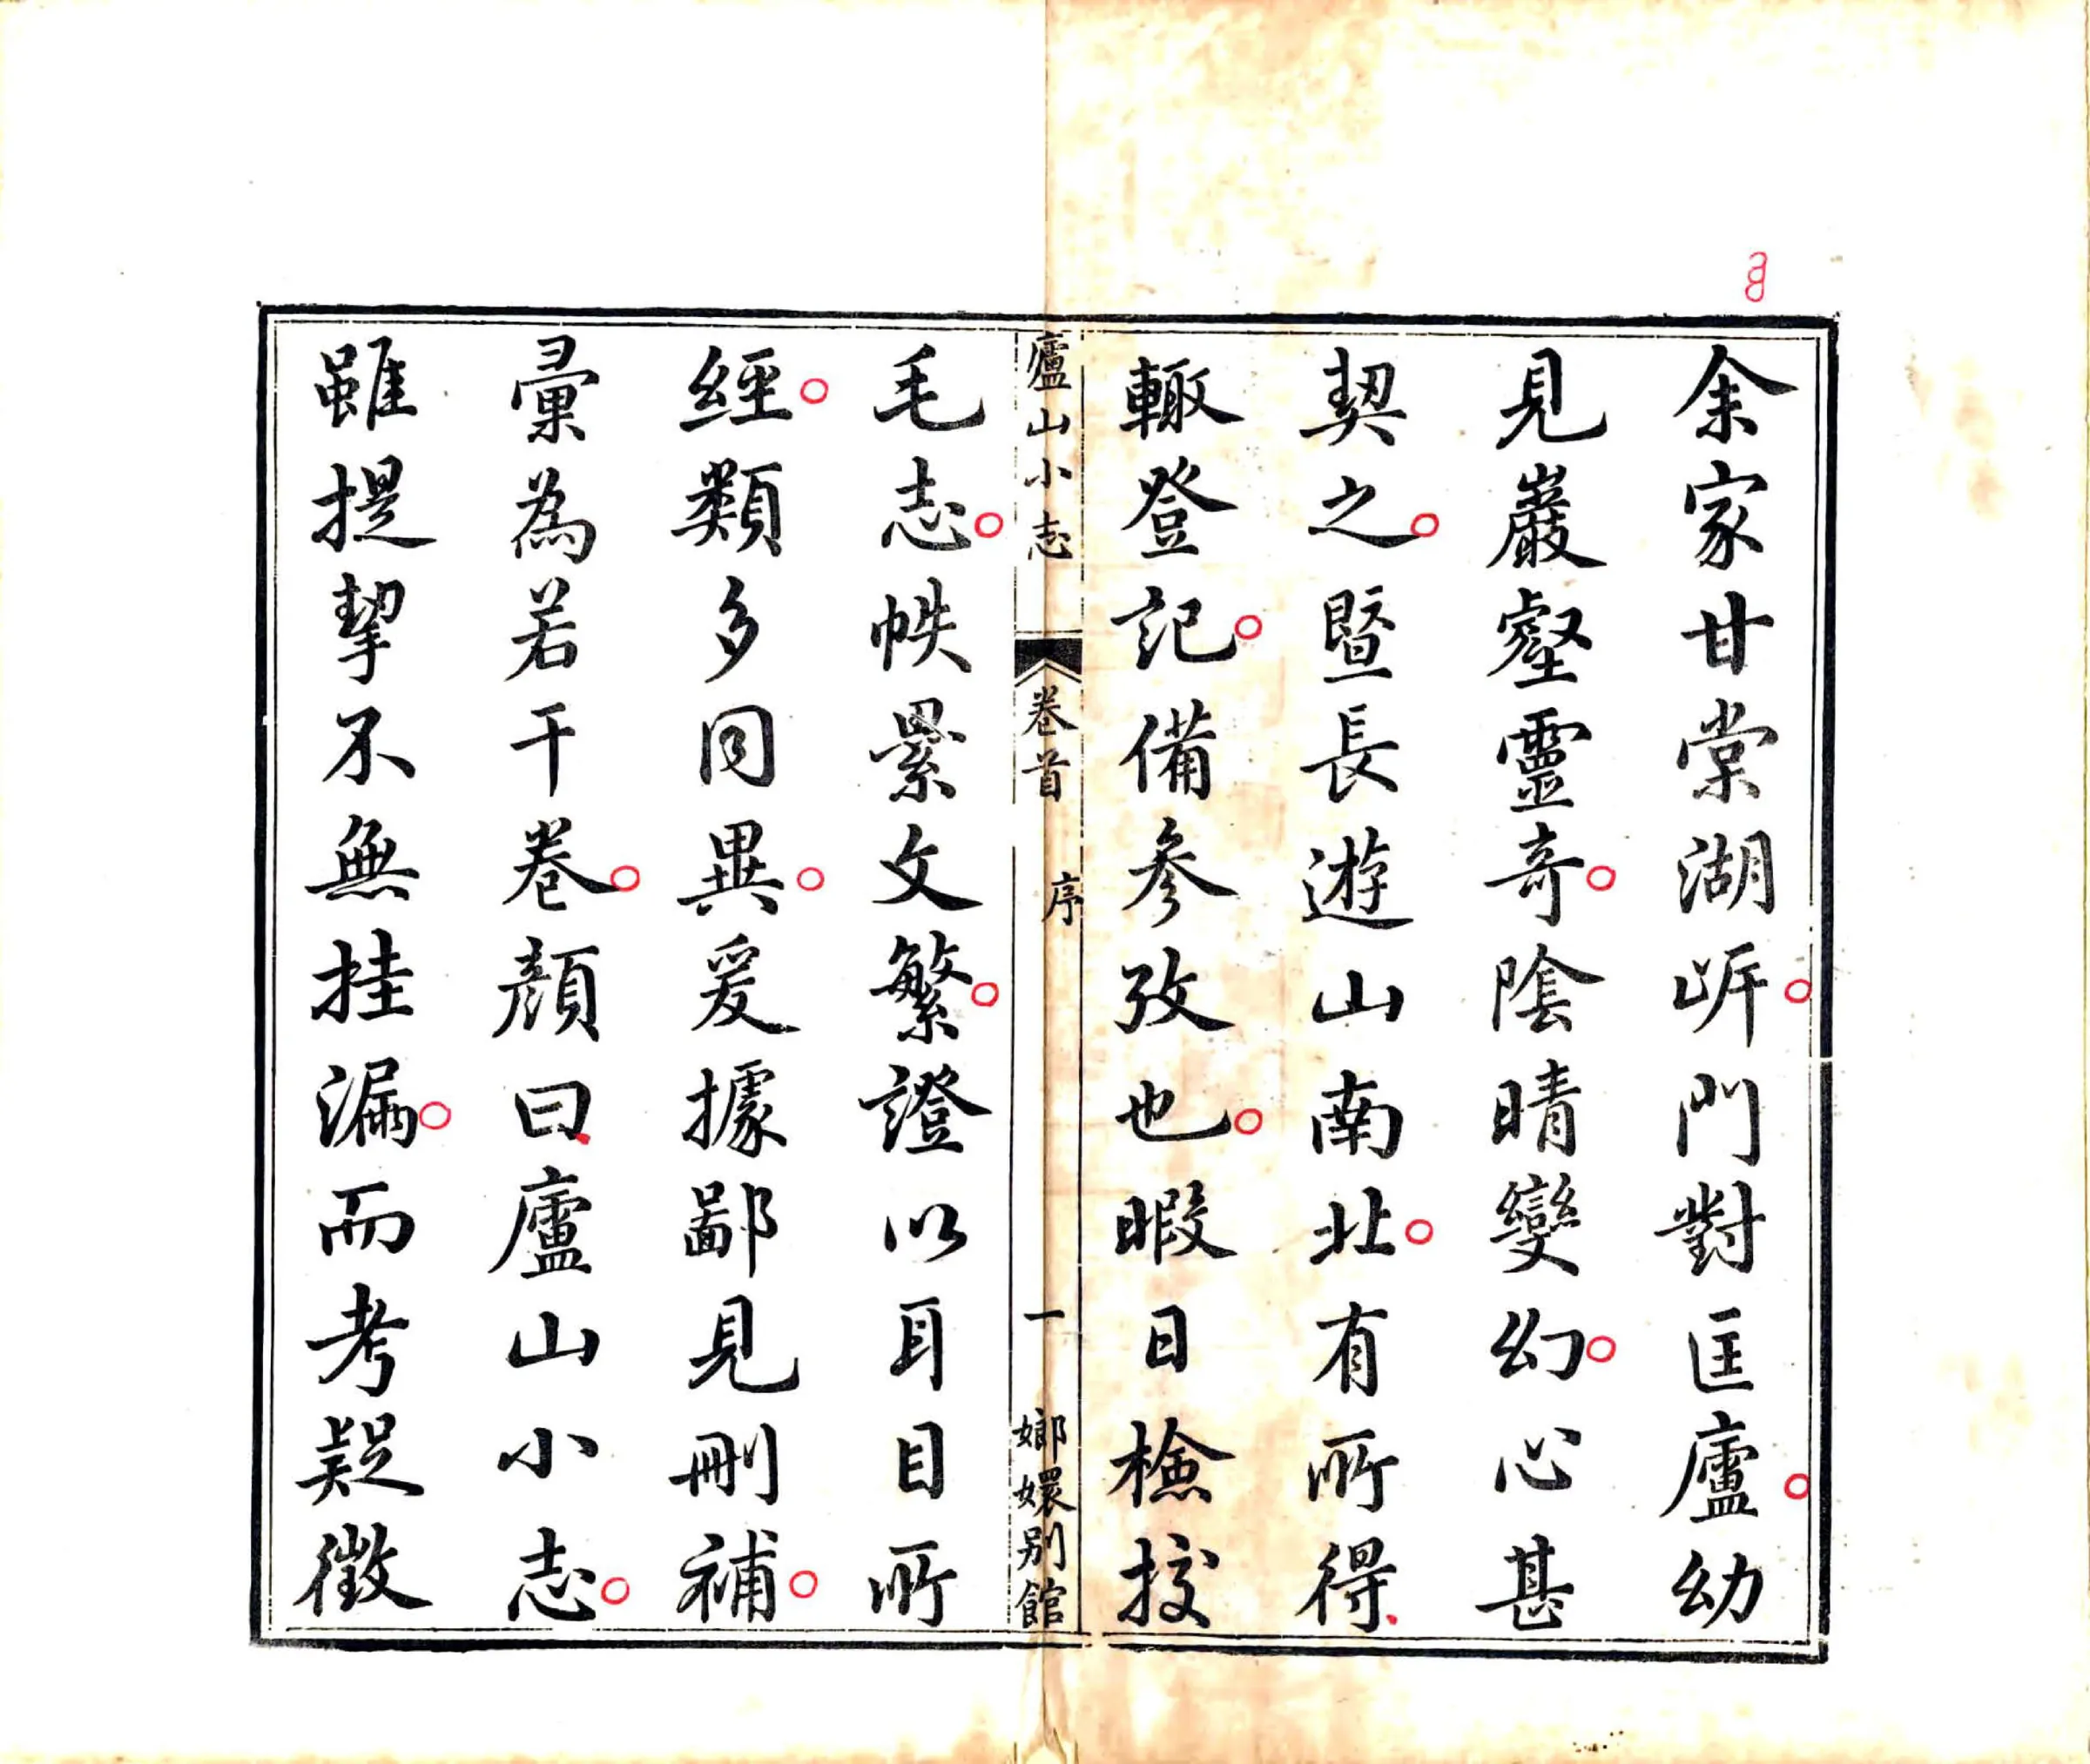 余家甘棠湖㟁門對匡廬幼
見巖壑靈奇陰晴變幻心甚
契之曁長遊山南北有所得
輙登記備參攷也暇日檢挍
廬山小志 卷首 序 一 嫏嬛别館
毛志帙纍文繁證以耳目所
經類多同異爰據鄙見刪補
彙為若干卷顏曰廬山小志
雖提挈不無挂漏而考疑徵